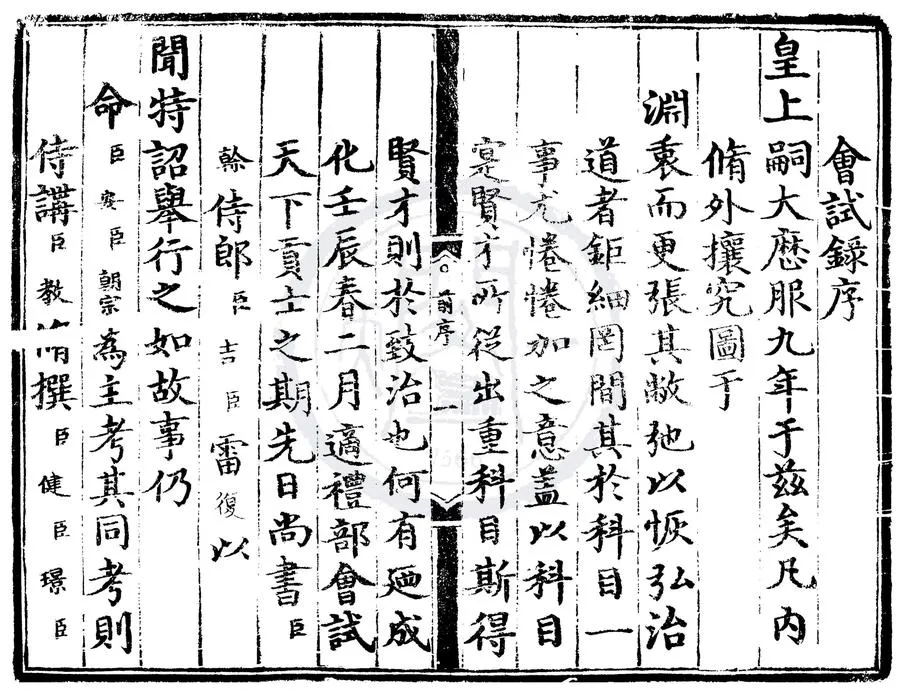 會試錄序
皇上嗣大歷服九年于茲矣凡內
脩外攘究圖于
淵衷而更張其敝弛以恢弘治
道者鉅細罔間其於科目一
事尤惓惓加之意蓋以科目
寔賢才所從出重科目斯得
前序
一
賢才則於致治也何有廼成
化壬辰春二月適禮部會試
天下貢士之期先日尚書臣
榦侍郎臣吉臣雷復以
聞特詔舉行之如故事仍
命臣安臣朝宗為主考其同考則
侍講臣教脩撰臣健臣璟臣